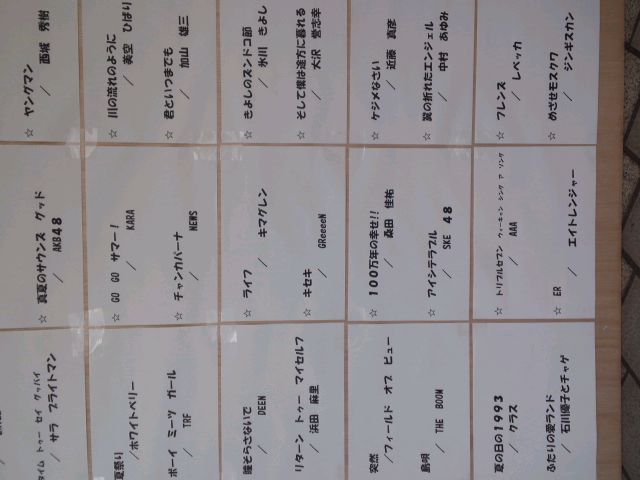 イム トゥー セイ グッバイ
／ サラ ブライトマン
☆ 真夏のサウンズ グッド
／ AKB48
☆ ヤングマン
／ 西城 秀樹
夏祭り
／ホワイトベリー
ボーイ ミーツ ガール
／ TRF
☆ GO GO サマー！
／ KARA
☆ チャンカパーナ
／ NEWS
☆ 川の流れのように
／ 美空 ひばり
☆ 君といつまでも
／ 加山 雄三
瞳そらさないで
／ DEEN
リターン トゥー マイセルフ
／ 浜田 麻里
☆ ライフ
／ キマグレン
☆ キセキ
／ GReeeeN
☆ きよしのズンドコ節
／ 氷川 きよし
☆ そして僕は途方に暮れる
／ 大沢 誉志幸
突然
／フィールド オブ ビュー
島唄
／ THE BOOM
☆ 100万年の幸せ!!
／ 桑田 佳祐
☆ アイシテラブル
／ SKE 48
☆ ケジメなさい
／ 近藤 真彦
☆ 翼の折れたエンジェル
／ 中村 あゆみ
夏の日の1993
／ クラス
ふたりの愛ランド
／ 石川優子とチャゲ
☆ トリプルセブン ウィーキャン シング ア ソング
／ AAA
☆ ER
／ エイトレンジャー
☆ フレンズ
／ レベッカ
☆ めざせモスクワ
／ ジンギスカン